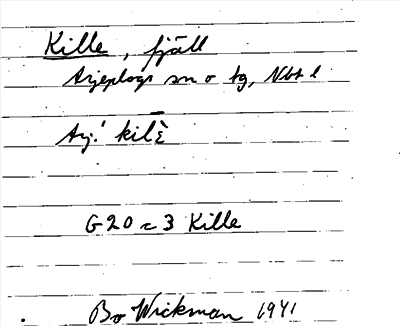 Kille, fjäll
Arjeplogs sn o tg, Nbt l
Arj.
G20 c 3 Kille
Bo Wickman 1941